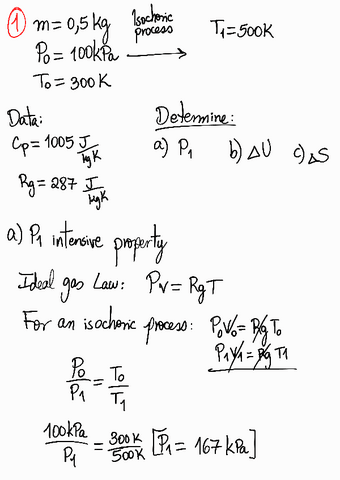 ① m = 0,5 kg Isochoric process T₁ = 500K
P₀ = 100kPa
T₀ = 300 K
Data: Determine:
Cp = 1005 J/kgK a) P₁ b) ΔU c) ΔS
Rg = 287 J/kgK
a) P₁ intensive property
Ideal gas Law: Pv = RgT
For an isochoric process: P₀v₀ = Rg T₀
P₁v₁ = Rg T₁
P₀/P₁ = T₀/T₁
100kPa/P₁ = 300K/500K [P₁ = 167 kPa]